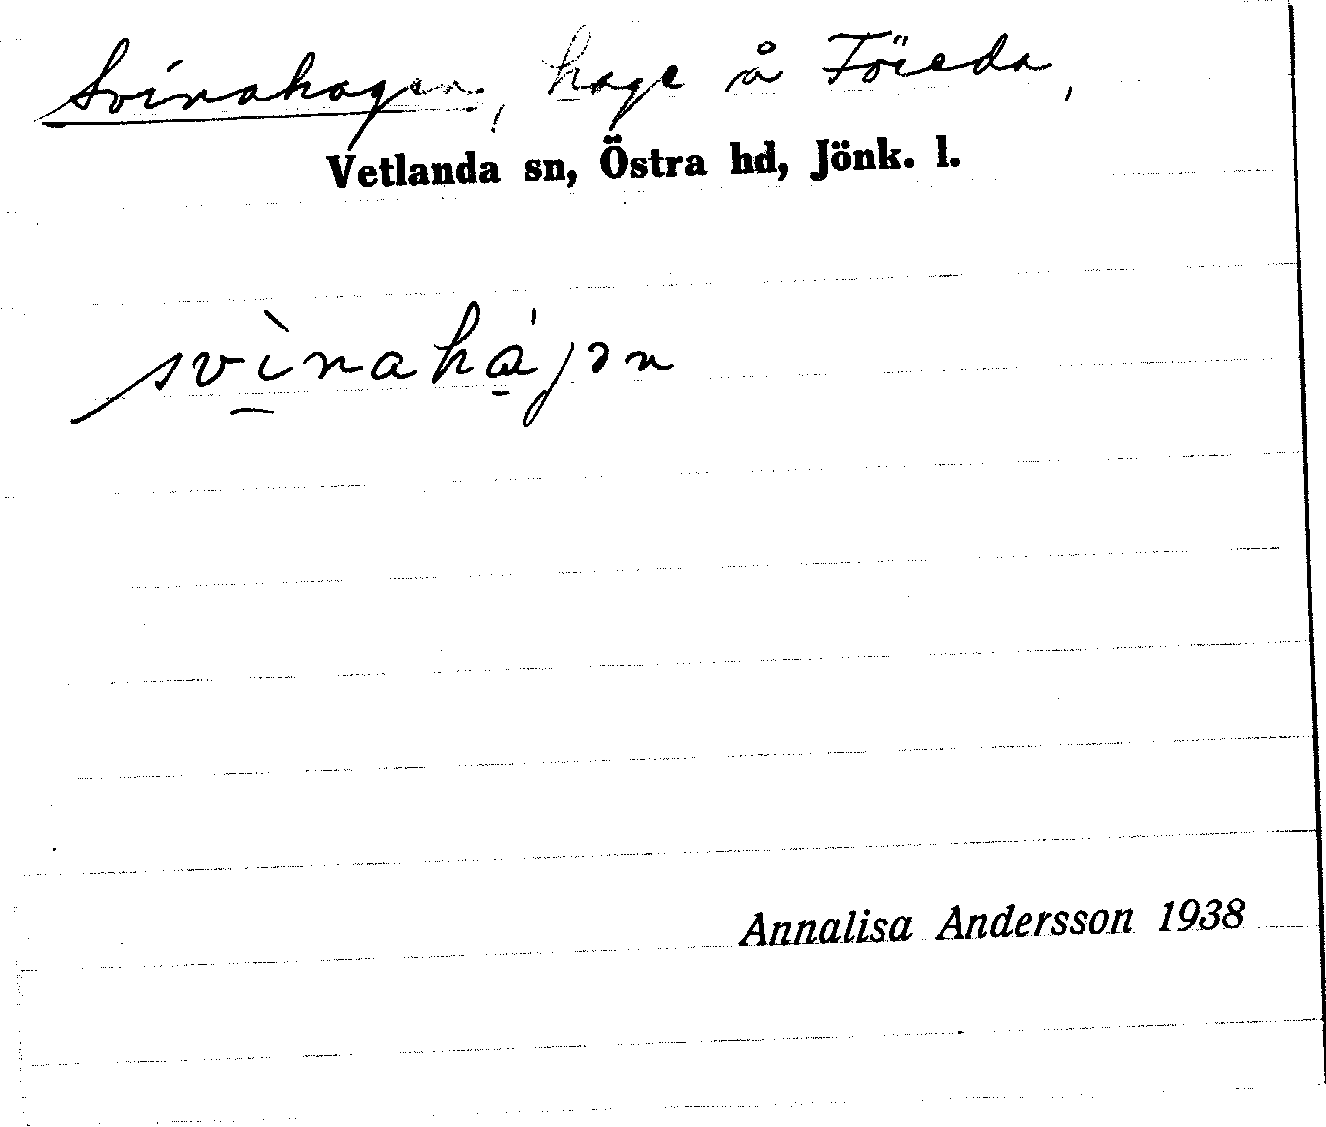 Svinahagen, hage å Föreda,
Vetlanda sn, Östra hd, Jönk. l.
svìnahájən
Annalisa Andersson 1938